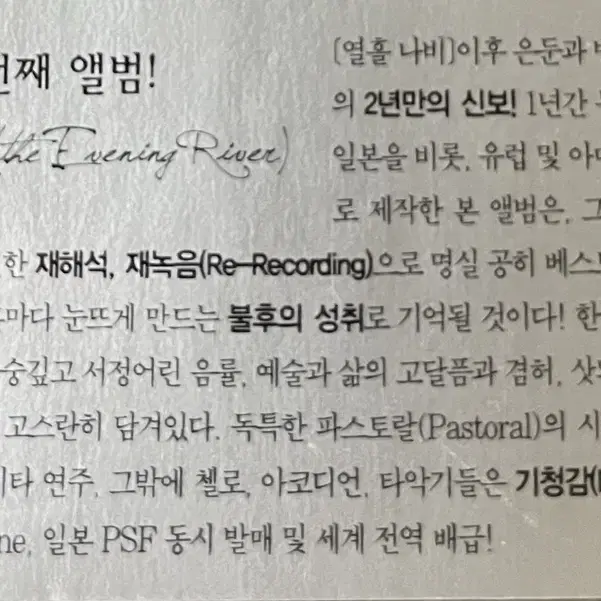 번째 앨범!
(the Evening River)
[열흘 나비]이후 은둔과
의 2년만의 신보! 1년간
일본을 비롯, 유럽 및
로 제작한 본 앨범은, 그
한 재해석, 재녹음(Re-Recording)으로 명실 공히
마다 눈뜨게 만드는 불후의 성취로 기억될 것이다! 한
숭깊고 서정어린 음률, 예술과 삶의 고달픔과 겸허,
고스란히 담겨있다. 독특한 파스토랄(Pastoral)의 시
타 연주, 그밖에 첼로, 아코디언, 타악기들은 기청감(
ne, 일본 PSF 동시 발매 및 세계 전역 배급!